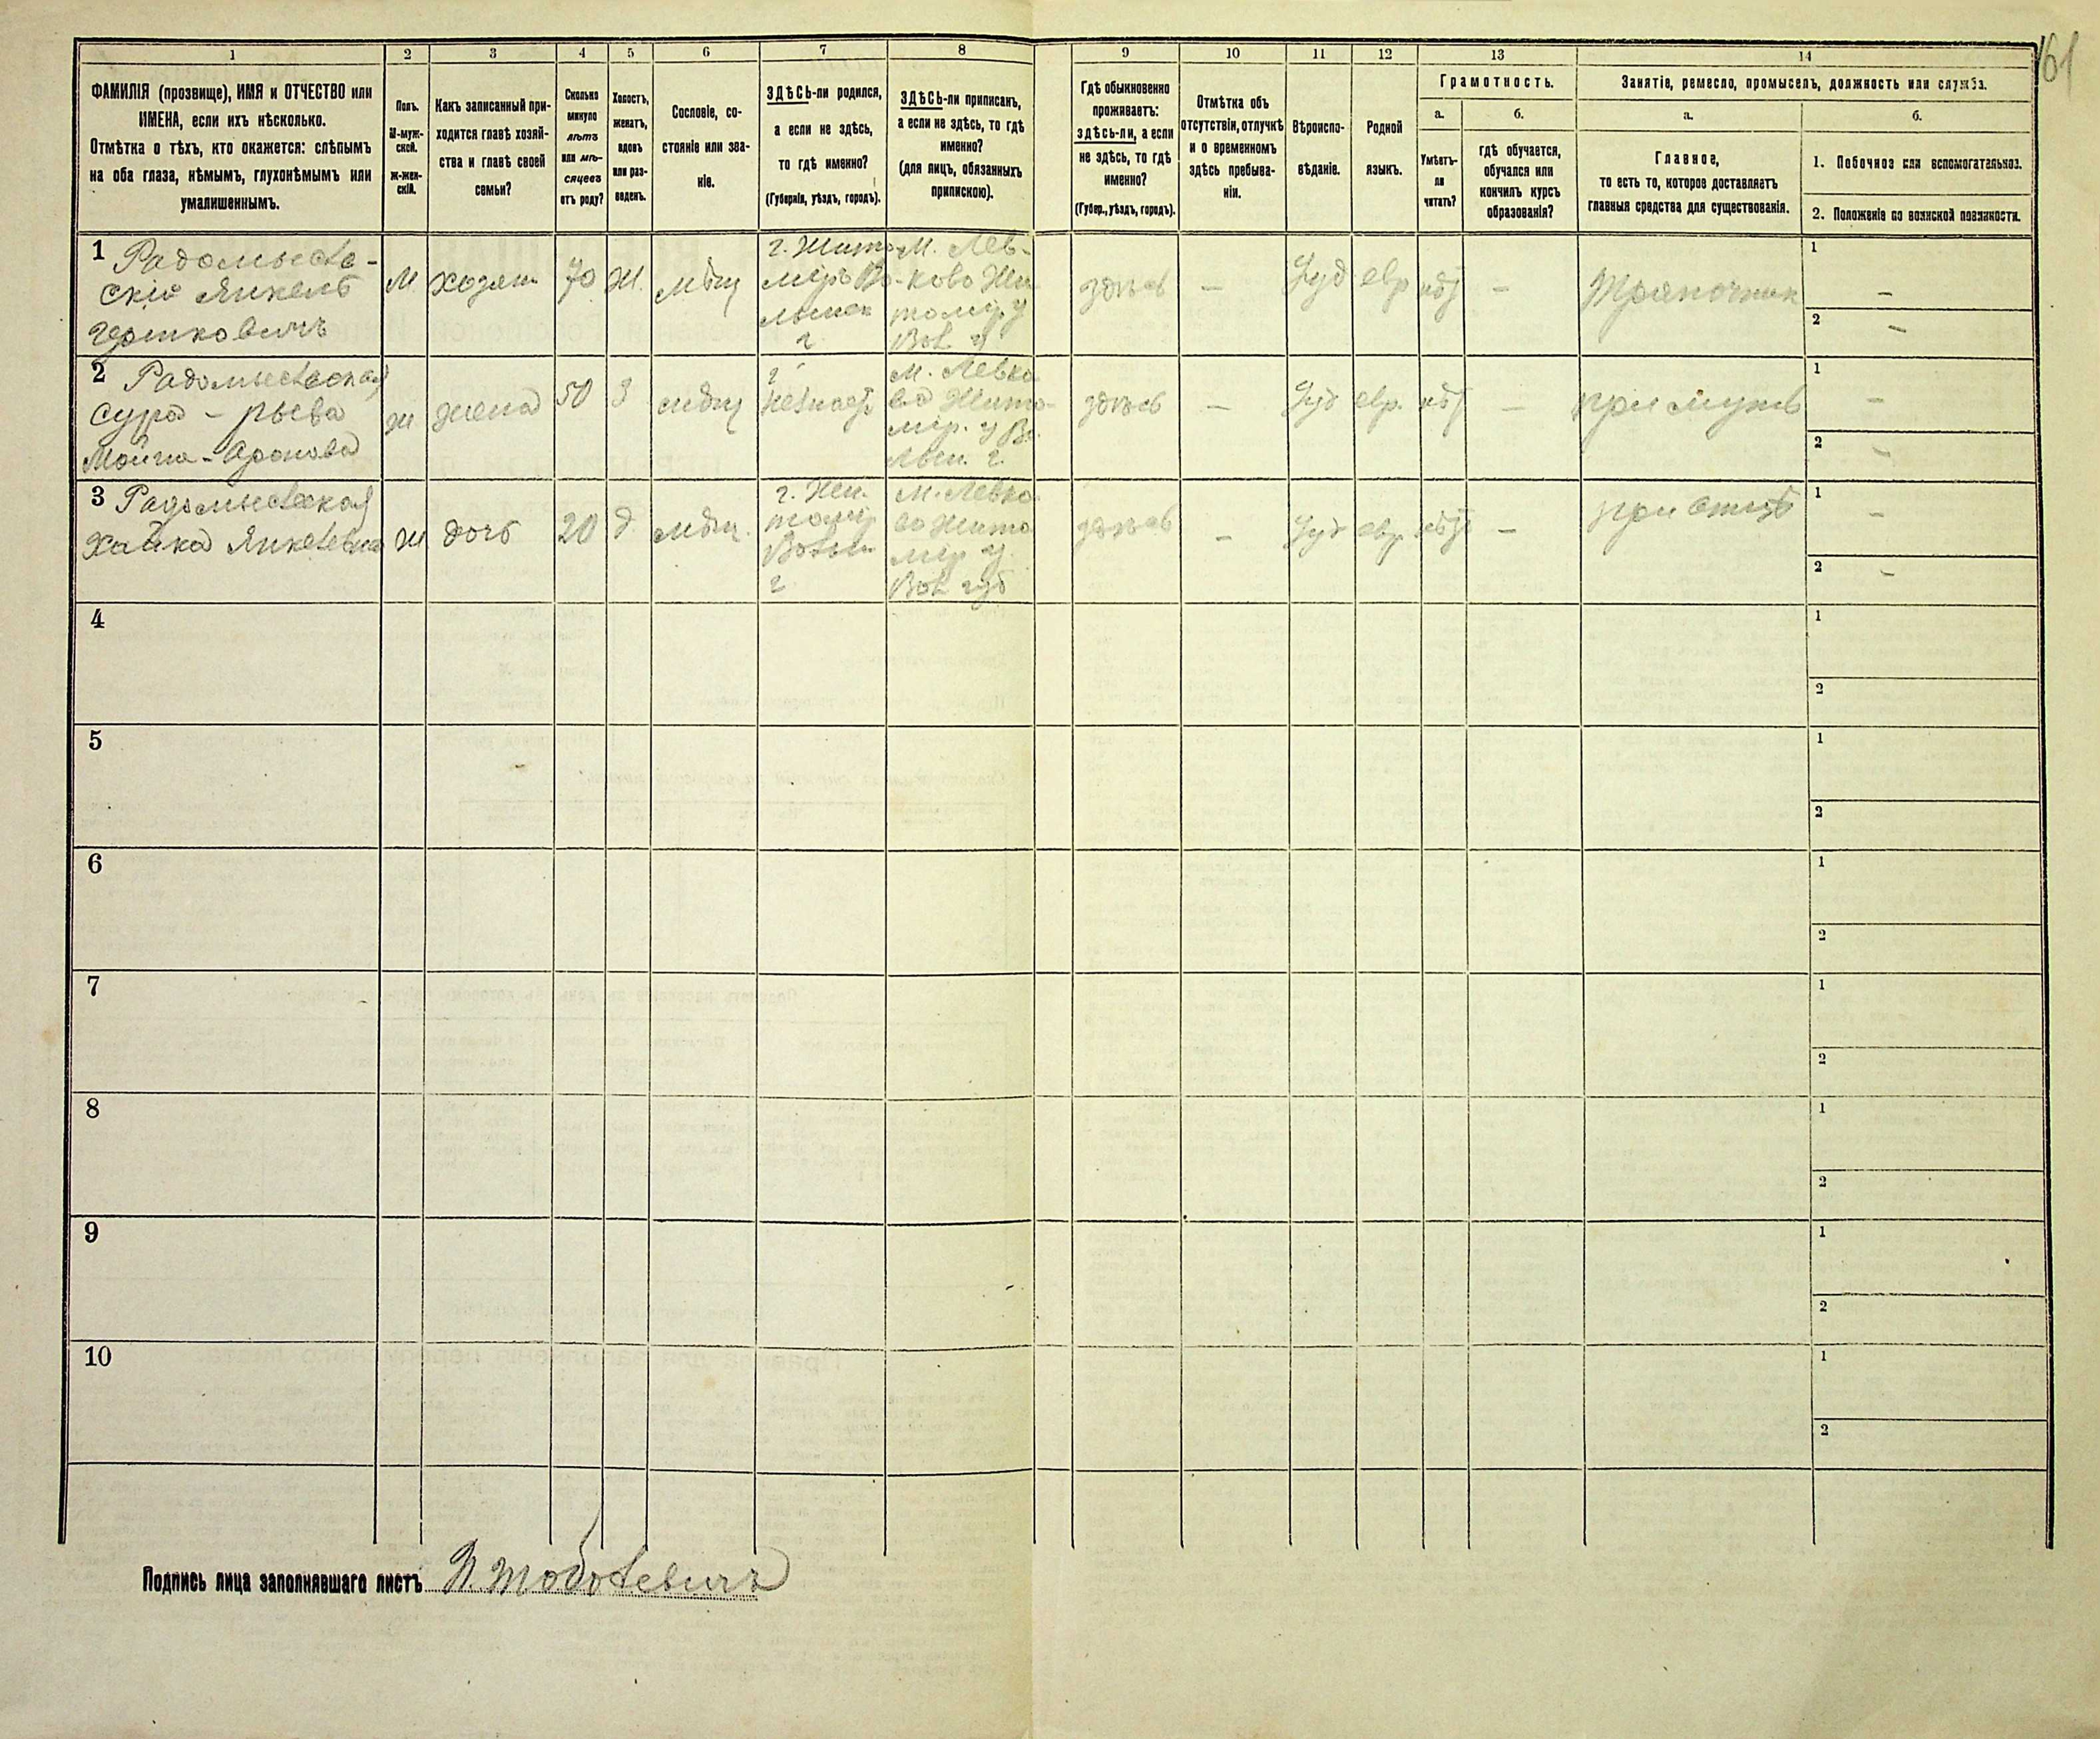 161
1 2 3 4 5 6 7 8 9 10 11 12 13 14
ФАМИЛІЯ (прозвище), ИМЯ и ОТЧЕСТВО или
ИМЕНА, если ихъ нѣсколько.
Отмѣтка о тѣхъ, кто окажется: слѣпымъ
на оба глаза, нѣмымъ, глухонѣмымъ или
умалишеннымъ.
Полъ.
М-муж-
ской.
Ж-жен-
скій.
Какъ записанный при-
ходится главѣ хозяй-
ства и главѣ своей
семьи?
Сколько
минуло
лѣтъ
или мѣ-
сяцевъ
отъ роду?
Холостъ,
женатъ,
вдовъ
или раз-
веденъ.
Сословіе, со-
стояніе или зва-
ніе.
ЗДѢСЬ-ли родился,
а если не здѣсь,
то гдѣ именно?
(Губернія, уѣздъ, городъ).
ЗДѢСЬ-ли приписанъ,
а если не здѣсь, то гдѣ
именно?
(для лицъ, обязанныхъ
припискою).
Гдѣ обыкновенно
проживаетъ:
здѣсь-ли, а если
не здѣсь, то гдѣ
именно?
(Губер., уѣздъ, городъ).
Отмѣтка объ
отсутствіи, отлучкѣ
и о временномъ
здѣсь пребыва-
ніи.
Вѣроиспо-
вѣданіе.
Родной
языкъ.
Грамотность.
а.
Умѣетъ-
ли
читать?
б.
гдѣ обучается,
обучался или
кончилъ курсъ
образованія?
Занятіе, ремесло, промыселъ, должность или служба.
а.
Главное,
то есть то, которое доставляетъ
главныя средства для существованія.
б.
1. Побочное или вспомогательное.
2. Положеніе по воинской повинности.
1 Радомысль-
скій Янкель
Гершковичъ
М
хозяин
70
Ж.
мѣщ
г. Жито
міръ Во
лынск
г
М. Лев-
ково Жи
томір. у
Вол. г
здѣсь
–
Іуд
евр
нѣт
–
Тряпочник
1 –
2 –
2 Радомысльская
Сура –
Ж
жена
50
З
мѣщ
г
М. Левко
во Жито-
мір. у Во
лын. г.
здѣсь
–
Іуд
евр.
нѣт
–
при мужѣ
1 –
2 –
3 Радомысльская
Хайка Янкелевна
Ж
дочь
20
д
мѣщ.
г. Жи
томір
Волын
г
М. Левко
во Жито
мір у.
Вол губ
здѣсь
–
Іуд
евр.
нѣт
–
при отцѣ
1 –
2 –
4
1
2
5
1
2
6
1
2
7
1
2
8
1
2
9
1
2
10
1
2
Подпись лица заполнявшаго листъ